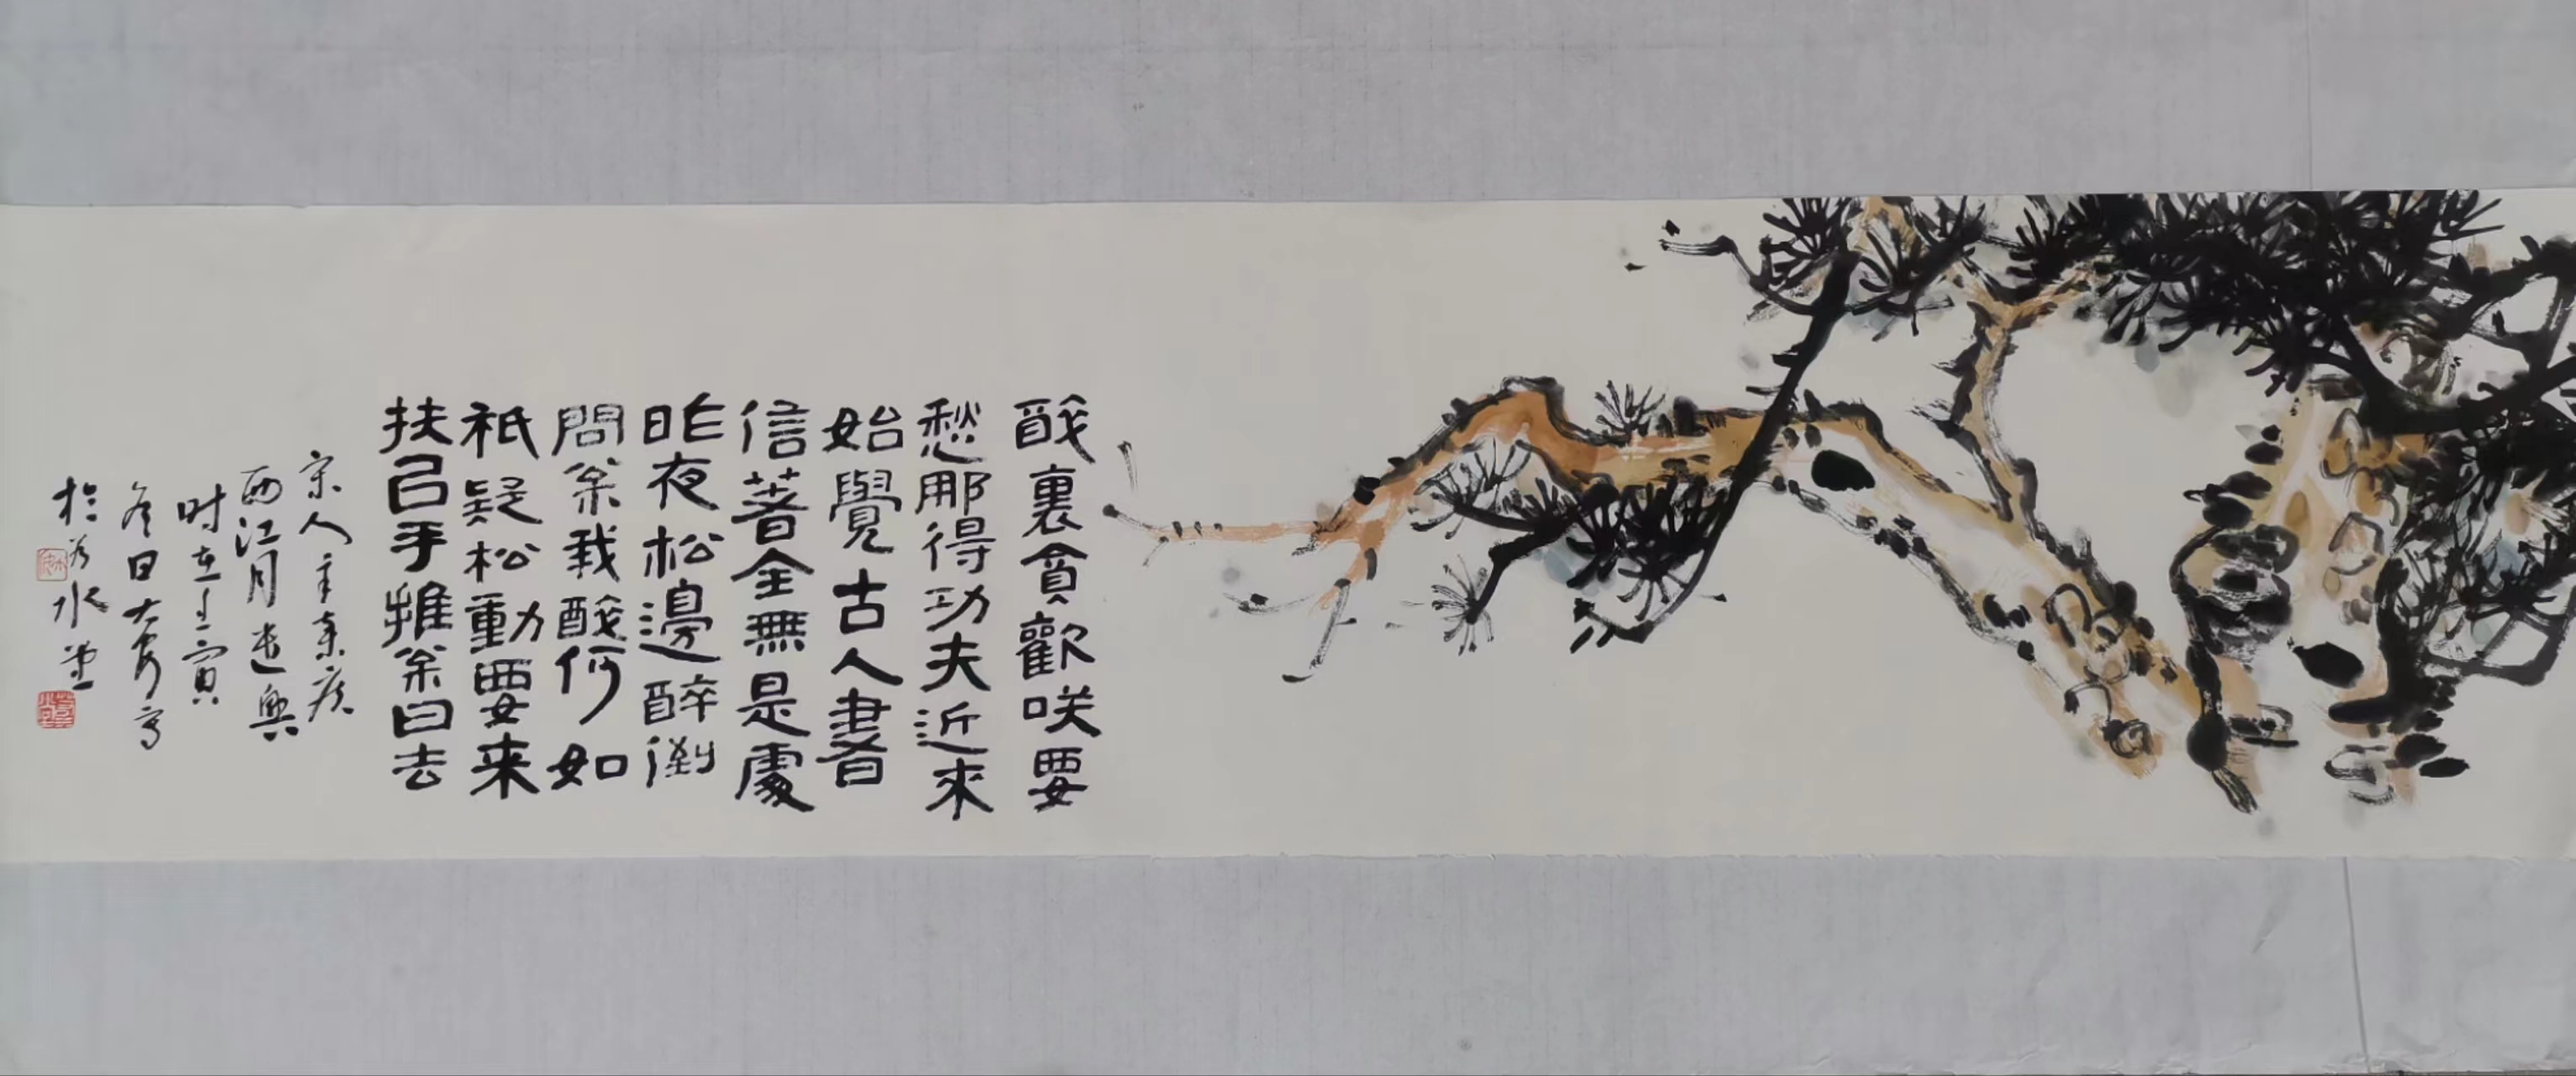 醉裏貪歡咲要
愁那得功夫近來
始覺古人書
信著全無是處
昨夜松邊醉倒
問枀我醉何如
祇疑松動要来
扶㠯手推枀曰去
宋人辛棄疾
西江月遣興
时在壬寅
冬日大安写
於若水堂